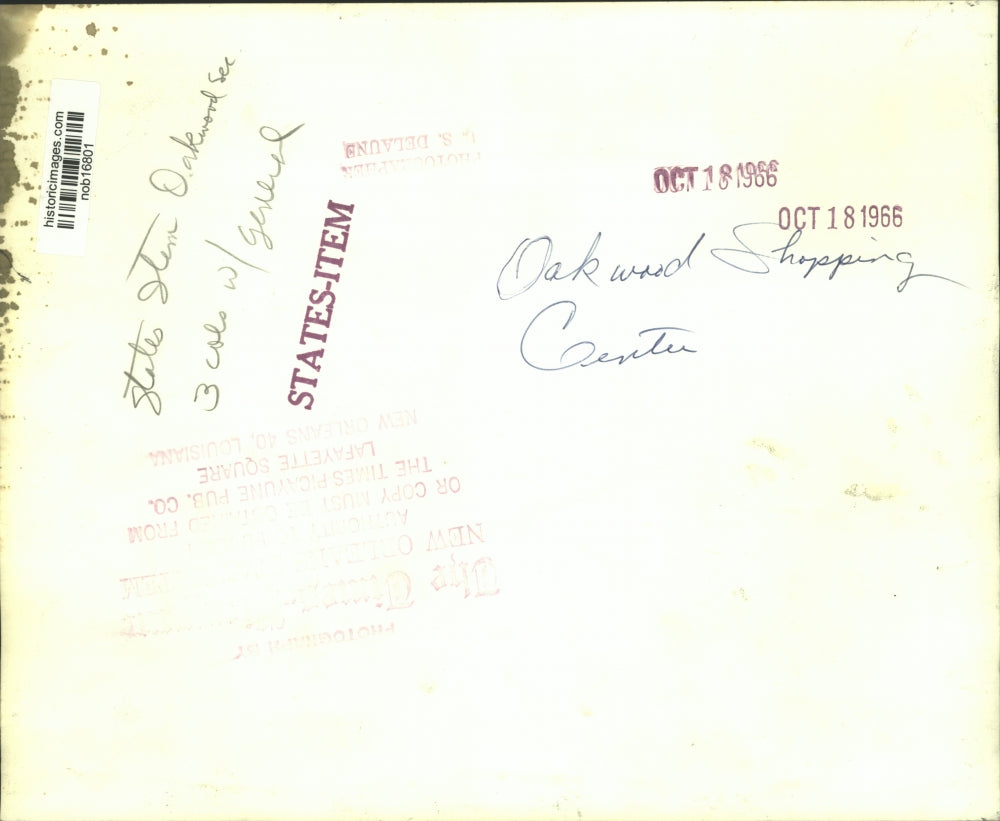 historicimages.com
nob16801
States Item Oakwood Sec
3 cols w/ general
STATES-ITEM
PHOTOGRAPHER
S. DELAUNE
OCT 18 1966
OCT 18 1966
Oakwood Shopping
Center
PHOTOGRAPH BY
The Times
NEW ORLEANS
AUTHORITY TO
OR COPY MUST BE OBTAINED FROM
THE TIMES PICAYUNE PUB. CO.
LAFAYETTE SQUARE
NEW ORLEANS 40, LOUISIANA